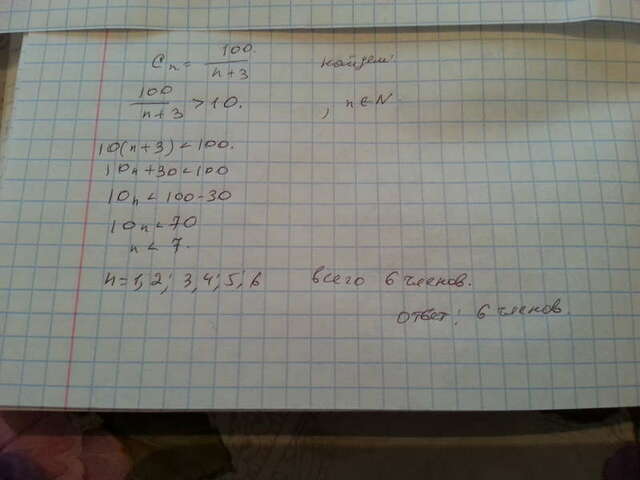 Cn = 100 / n+3. найдем:
100 / n+3 > 10. , n∈N.
10(n+3) < 100.
10n + 30 < 100
10n < 100-30
10n < 70
n < 7.
n = 1, 2, 3, 4, 5, 6 всего 6 членов.
Ответ: 6 членов.